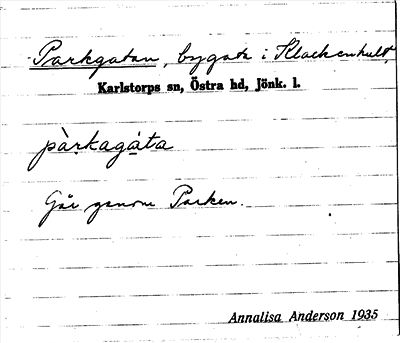 Parkgatan, bygata i Klackenhult,
Karlstorps sn, Östra hd, Jönk. l.
pàrkagáta
Går genom Parken.
Annalisa Anderson 1935